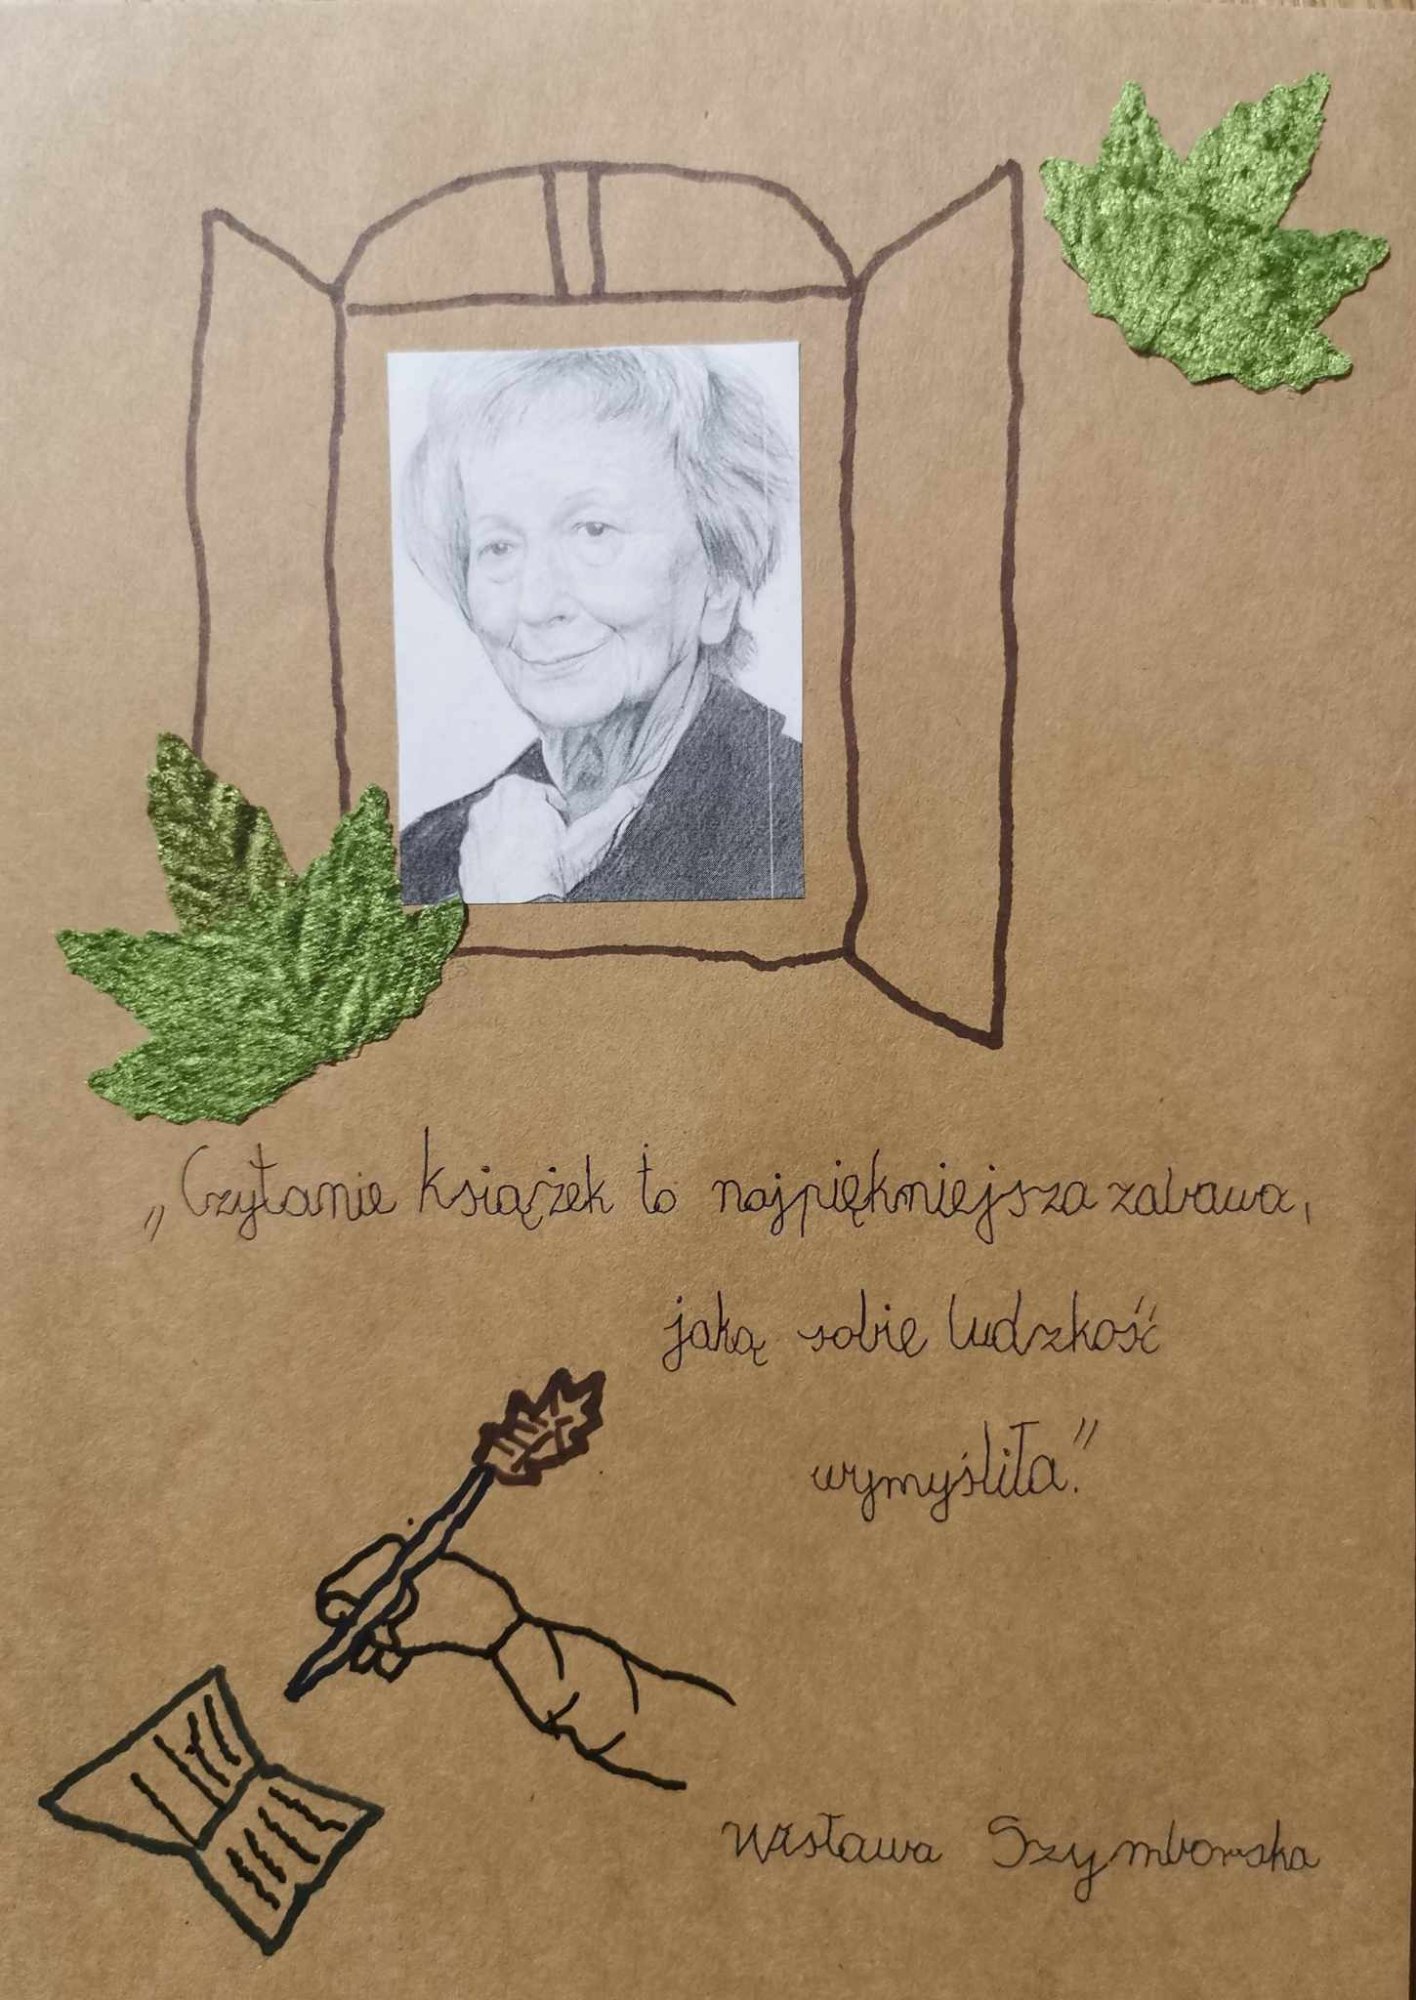 „Czytanie książek to najpiękniejsza zabawa,
jaką sobie ludzkość
wymyśliła."
Wisława Szymborska